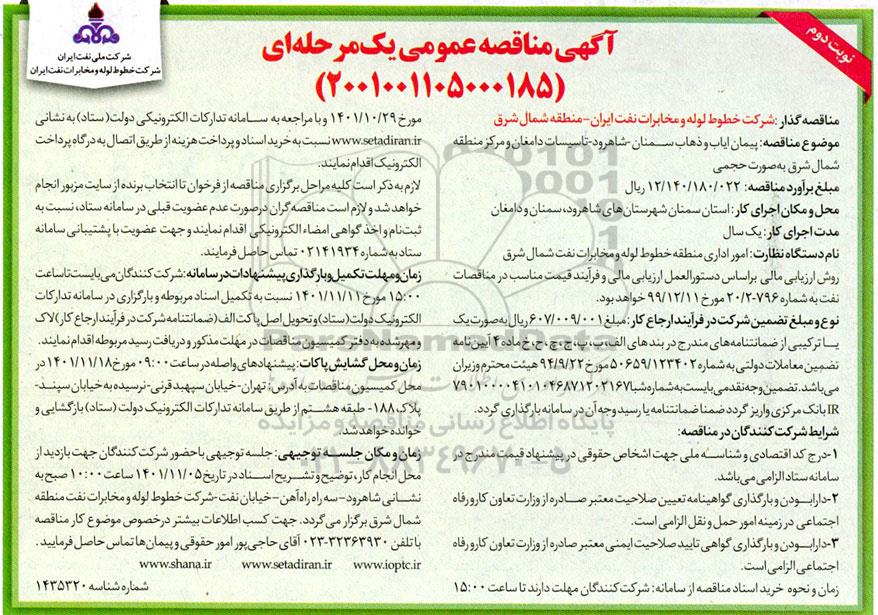 نوبت دوم
شرکت ملی نفت ایران
شرکت خطوط لوله و مخابرات نفت ایران
آگهی مناقصه عمومی یک مرحله‌ای
(۲۰۰۱۰۰۱۱۰۵۰۰۰۱۸۵)
مناقصه گذار: شرکت خطوط لوله و مخابرات نفت ایران - منطقه شمال شرق
موضوع مناقصه: پیمان ایاب و ذهاب سمنان - شاهرود - تاسیسات دامغان و مرکز منطقه
شمال شرق به‌صورت حجمی
مبلغ برآورد مناقصه: ۱۲/۱۴۰/۱۸۰/۰۲۲ ریال
محل و مکان اجرای کار: استان سمنان شهرستان های شاهرود، سمنان و دامغان
مدت اجرای کار: یک سال
نام دستگاه نظارت: امور اداری منطقه خطوط لوله و مخابرات نفت شمال شرق
روش ارزیابی مالی براساس دستورالعمل ارزیابی مالی و فرآیند قیمت مناسب در مناقصات
نفت به شماره ۷۹۶-۲۰/۲ مورخ ۹۹/۱۲/۱۱ خواهد بود.
نوع و مبلغ تضمین شرکت در فرآیند ارجاع کار: مبلغ ۶۰۷/۰۰۹/۰۰۱ ریال به صورت یک
یا ترکیبی از ضمانتنامه های مندرج در بند های الف، ب، پ، ج، چ، ح، خ ماده ۴ آیین نامه
تضمین معاملات دولتی به شماره ۵۰۶۵۹/۱۲۳۴۰۲ مورخ ۹۴/۹/۲۲ هیئت محترم وزیران
می باشد. تضمین وجه نقدمی بایست به شماره شبا ۷۹۰۱۰۰۰۰۴۱۰۱۰۴۶۸۷۱۲۰۲۱۶۷
IR بانک مرکزی واریز گردد ضمنا ضمانتنامه یا رسید وجه آن در سامانه بارگذاری گردد.
شرایط شرکت کنندگان در مناقصه:
۱-درج کد اقتصادی و شناسه ملی جهت اشخاص حقوقی در پیشنهاد قیمت مندرج در
سامانه ستاد الزامی می باشد.
۲-دارابودن و بارگذاری گواهینامه تعیین صلاحیت معتبر صادره از وزارت تعاون کار و رفاه
اجتماعی در زمینه امور حمل و نقل الزامی است.
۳-دارابودن و بارگذاری گواهی تایید صلاحیت ایمنی معتبر صادره از وزارت تعاون کار و رفاه
اجتماعی الزامی است.
زمان و نحوه خرید اسناد مناقصه از سامانه: شرکت کنندگان مهلت دارند تا ساعت ۱۵:۰۰
مورخ ۱۴۰۱/۱۰/۲۹ و با مراجعه به سامانه تدارکات الکترونیکی دولت (ستاد) به نشانی
www.setadiran.ir نسبت به خرید اسناد و پرداخت هزینه از طریق اتصال به درگاه پرداخت
الکترونیک اقدام نمایند.
لازم به ذکر است کلیه مراحل برگزاری مناقصه از فرخوان تا انتخاب برنده از سایت مزبور انجام
خواهد شد و لازم است مناقصه گران درصورت عدم عضویت قبلی در سامانه ستاد، نسبت به
ثبت نام و اخذ گواهی امضاء الکترونیکی اقدام نمایند و جهت عضویت با پشتیبانی سامانه
ستاد به شماره ۰۲۱۴۱۹۳۴ تماس حاصل فرمایند.
زمان و مهلت تکمیل و بارگذاری پیشنهادات در سامانه: شرکت کنندگان می بایست تا ساعت
۱۵:۰۰ مورخ ۱۴۰۱/۱۱/۱۱ نسبت به تکمیل اسناد مربوطه و بارگزاری در سامانه تدارکات
الکترونیک دولت (ستاد) و تحویل اصل پاکت الف (ضمانتنامه شرکت در فرآیند ارجاع کار) لاک
و مهر شده به دفتر کمیسیون مناقصات در مهلت مذکور و دریافت رسید مربوطه اقدام نمایند.
زمان و محل گشایش پاکات: پیشنهادهای واصله در ساعت ۰۹:۰۰ مورخ ۱۴۰۱/۱۱/۱۸ در
محل کمیسیون مناقصات به آدرس: تهران-خیابان سپهبد قرنی-نرسیده به خیابان سپند-
پلاک ۱۸۸- طبقه هشتم از طریق سامانه تدارکات الکترونیک دولت (ستاد) بازگشایی و
خوانده خواهد شد.
زمان و مکان جلسه توجیهی: جلسه توجیهی با حضور شرکت کنندگان جهت بازدید از
محل انجام کار، توضیح و تشریح اسناد در تاریخ ۱۴۰۱/۱۱/۰۵ ساعت ۱۰:۰۰ صبح به
نشانی شاهرود-سه راه راه آهن-خیابان نفت-شرکت خطوط لوله و مخابرات نفت منطقه
شمال شرق برگزار می گردد. جهت کسب اطلاعات بیشتر درخصوص موضوع کار مناقصه
با تلفن ۳۲۳۶۳۹۳۰-۰۲۳ آقای حاجی پور امور حقوقی و پیمان ها تماس حاصل فرمایید.
www.shana.ir www.setadiran.ir www.ioptc.ir
شماره شناسه ۱۴۳۵۳۲۰
ParsNamadData
پایگاه اطلاع رسانی مناقصه و مزایده
۰۲۱-۸۸۳۴۹۶۷۰-۵